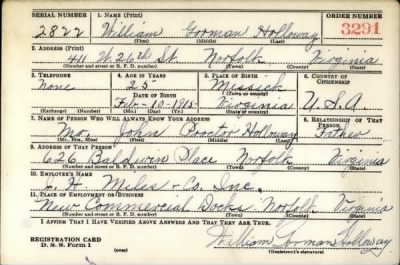 SERIAL NUMBER 1. NAME (Print) ORDER NUMBER
2822 William Gorman Holloway 3291
(First) (Middle) (Last)
2. ADDRESS (Print)
411 W. 26th St. Norfolk Virginia
(Number and street or R. F. D. number) (Town) (County) (State)
3. TELEPHONE 4. AGE IN YEARS 5. PLACE OF BIRTH 6. COUNTRY OF CITIZENSHIP
None 25 Messick
DATE OF BIRTH (Town or county)
Feb. 10-1915 Virginia U.S.A.
(Exchange) (Number) (Mo.) (Day) (Yr.) (State or country)
7. NAME OF PERSON WHO WILL ALWAYS KNOW YOUR ADDRESS 8. RELATIONSHIP OF THAT PERSON
Mr. John Proctor Holloway Father
(Mr., Mrs., Miss) (First) (Middle) (Last)
9. ADDRESS OF THAT PERSON
626 Baldwin Place Norfolk Virginia
(Number and street or R. F. D. number) (Town) (County) (State)
10. EMPLOYER'S NAME
H. Miles & Co. Inc.
11. PLACE OF EMPLOYMENT OR BUSINESS
New Commercial Docks Norfolk Virginia
(Number and street or R. F. D. number) (Town) (County) (State)
I AFFIRM THAT I HAVE VERIFIED ABOVE ANSWERS AND THAT THEY ARE TRUE.
REGISTRATION CARD
D. S. S. Form 1 (over) William Gorman Holloway
(Registrant's signature)